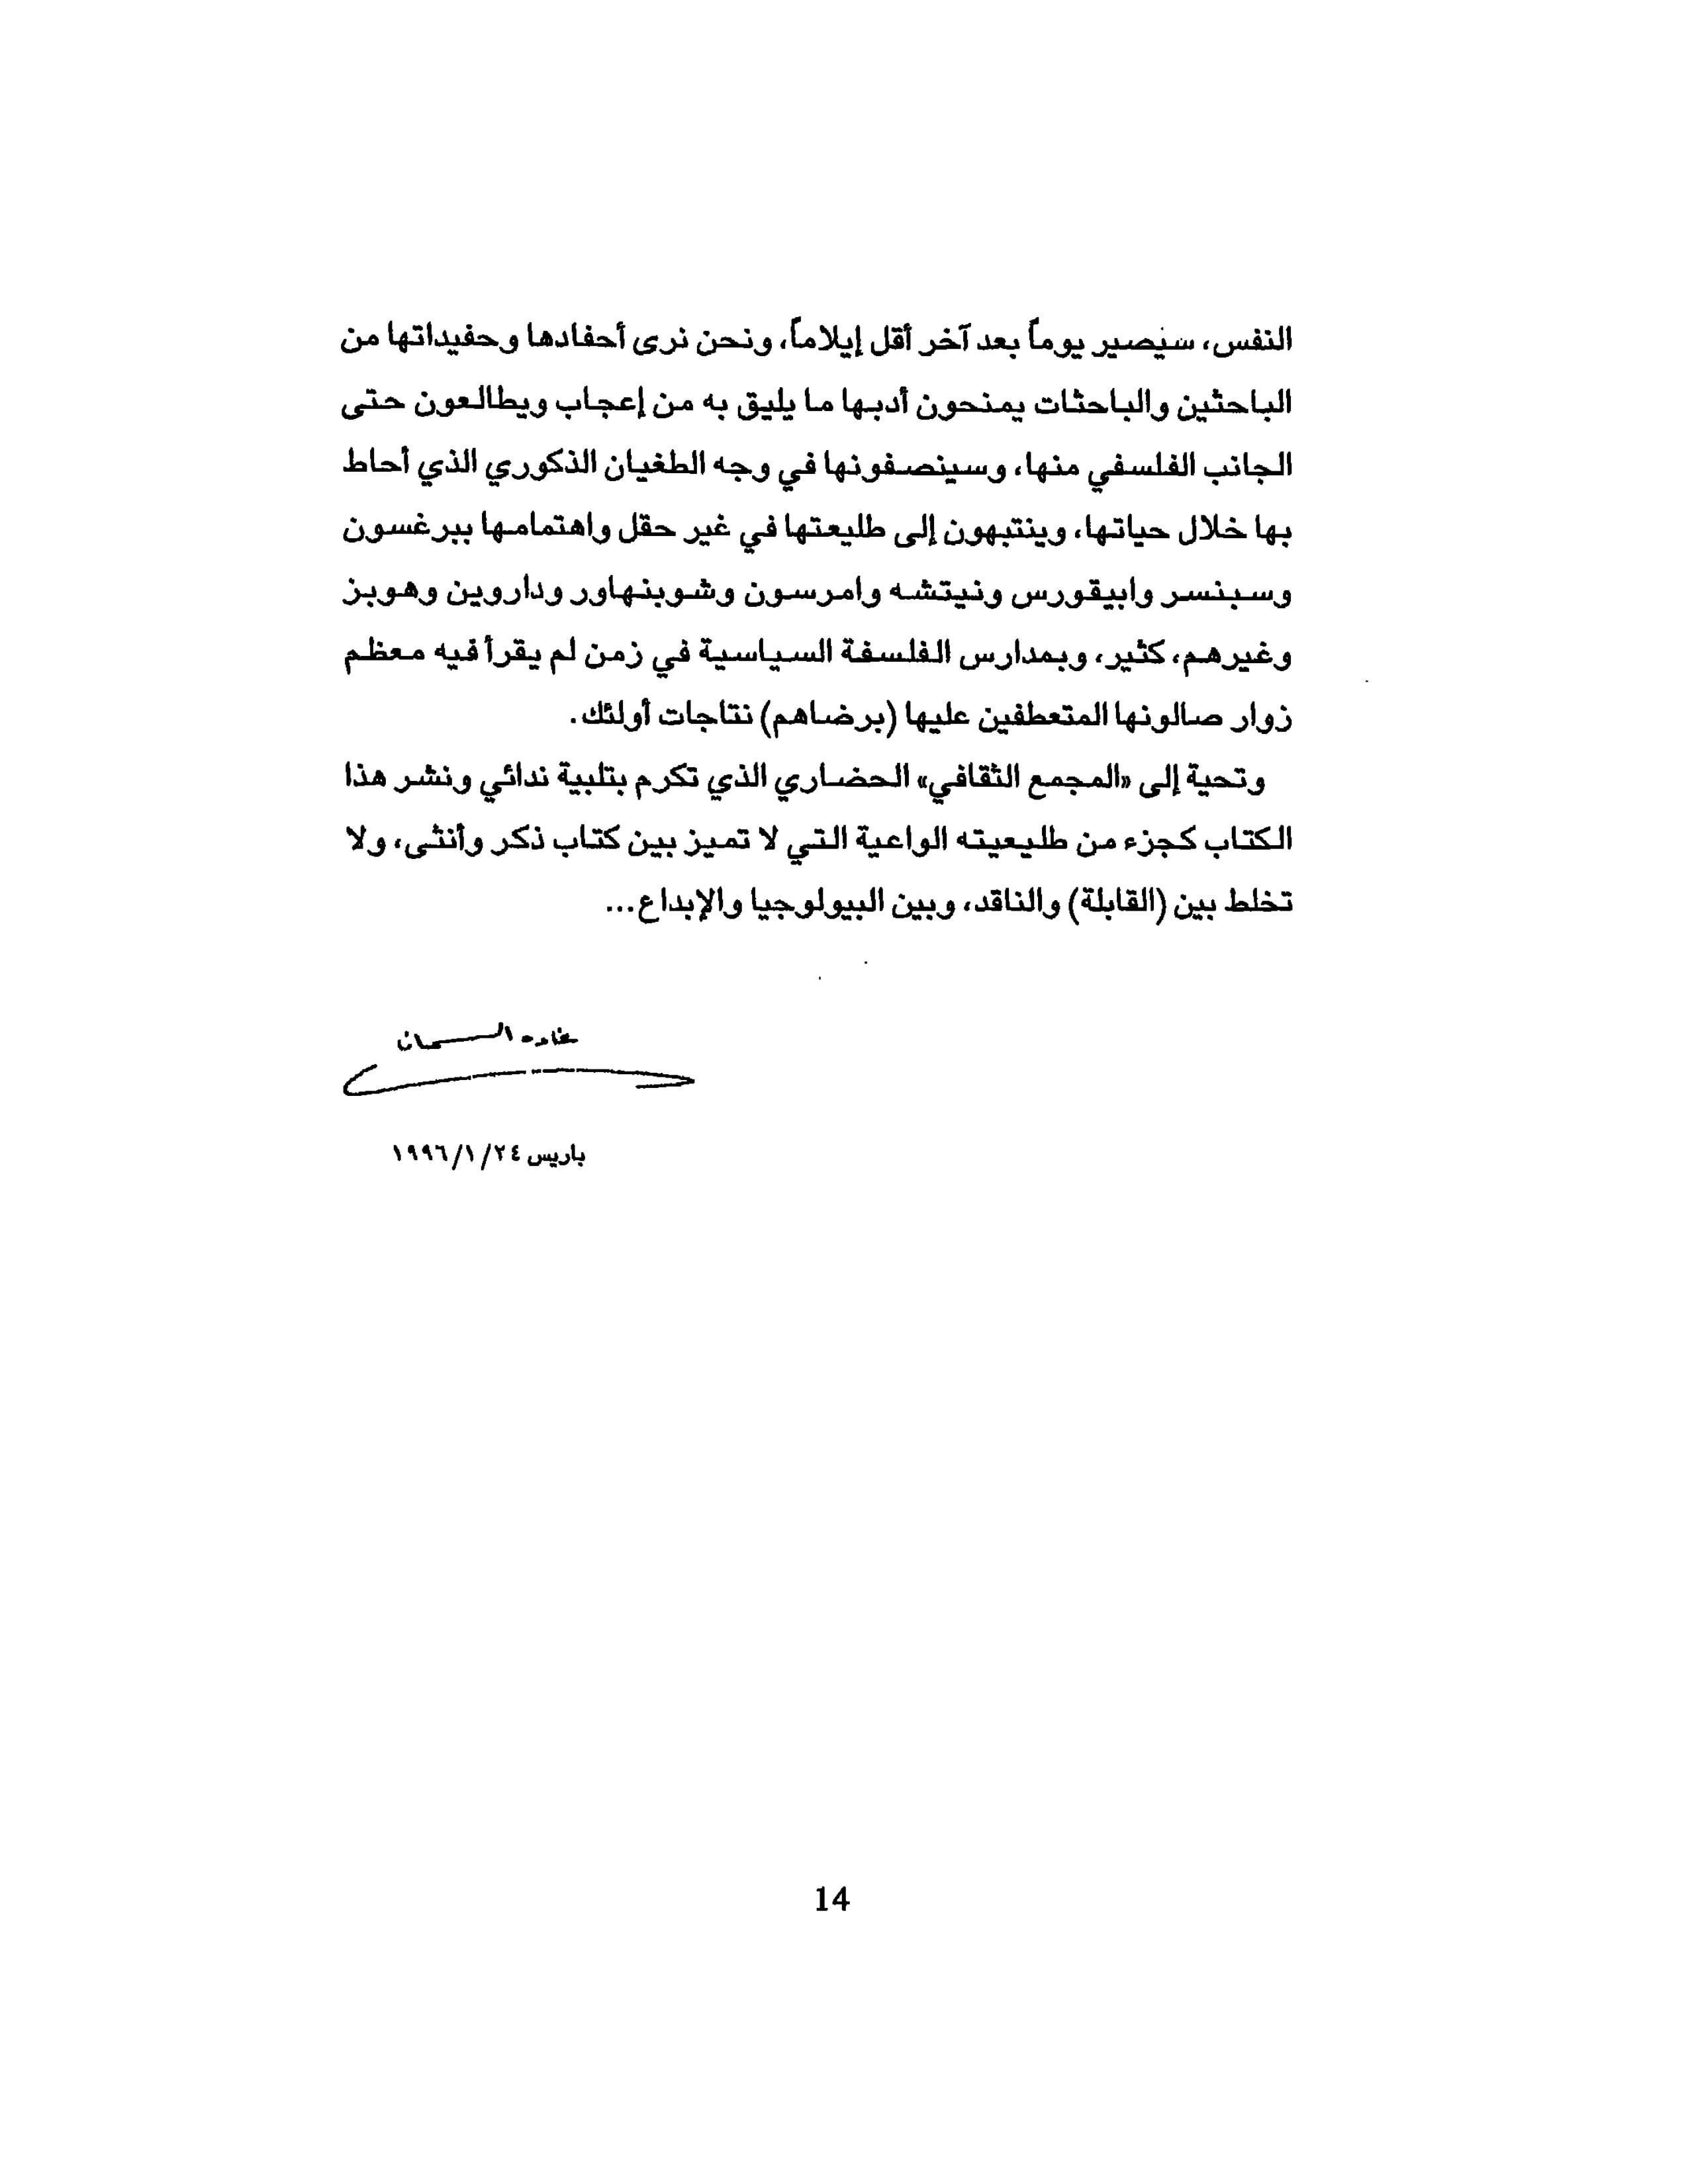 النفس، سيصير يوماً بعد آخر أقل إيلاماً، ونحن نرى أحفادها وحفيداتها من
الباحثين والباحثات يمنحون أدبها ما يليق به من إعجاب ويطالعون حتى
الجانب الفلسفي منها، وسينصفونها في وجه الطغيان الذكوري الذي أحاط
بها خلال حياتها، وينتبهون إلى طليعتها في غير حقل واهتمامها ببرغسون
وسبنسر وابيقورس ونيتشه وامرسون وشوبنهاور وداروين وهوبز
وغيرهم، كثير، وبمدارس الفلسفة السياسية في زمن لم يقرأ فيه معظم
زوار صالونها المتعطفين عليها (برضاهم) نتاجات أولئك.
وتحية إلى «المجمع الثقافي» الحضاري الذي تكرم بتلبية ندائي ونشر هذا
الكتاب كجزء من طليعيته الواعية التي لا تميز بين كتاب ذكر وأنثى، ولا
تخلط بين (القابلة) والناقد، وبين البيولوجيا والإبداع...
غاده السمان
باريس ٢٤/١/١٩٩٦
14